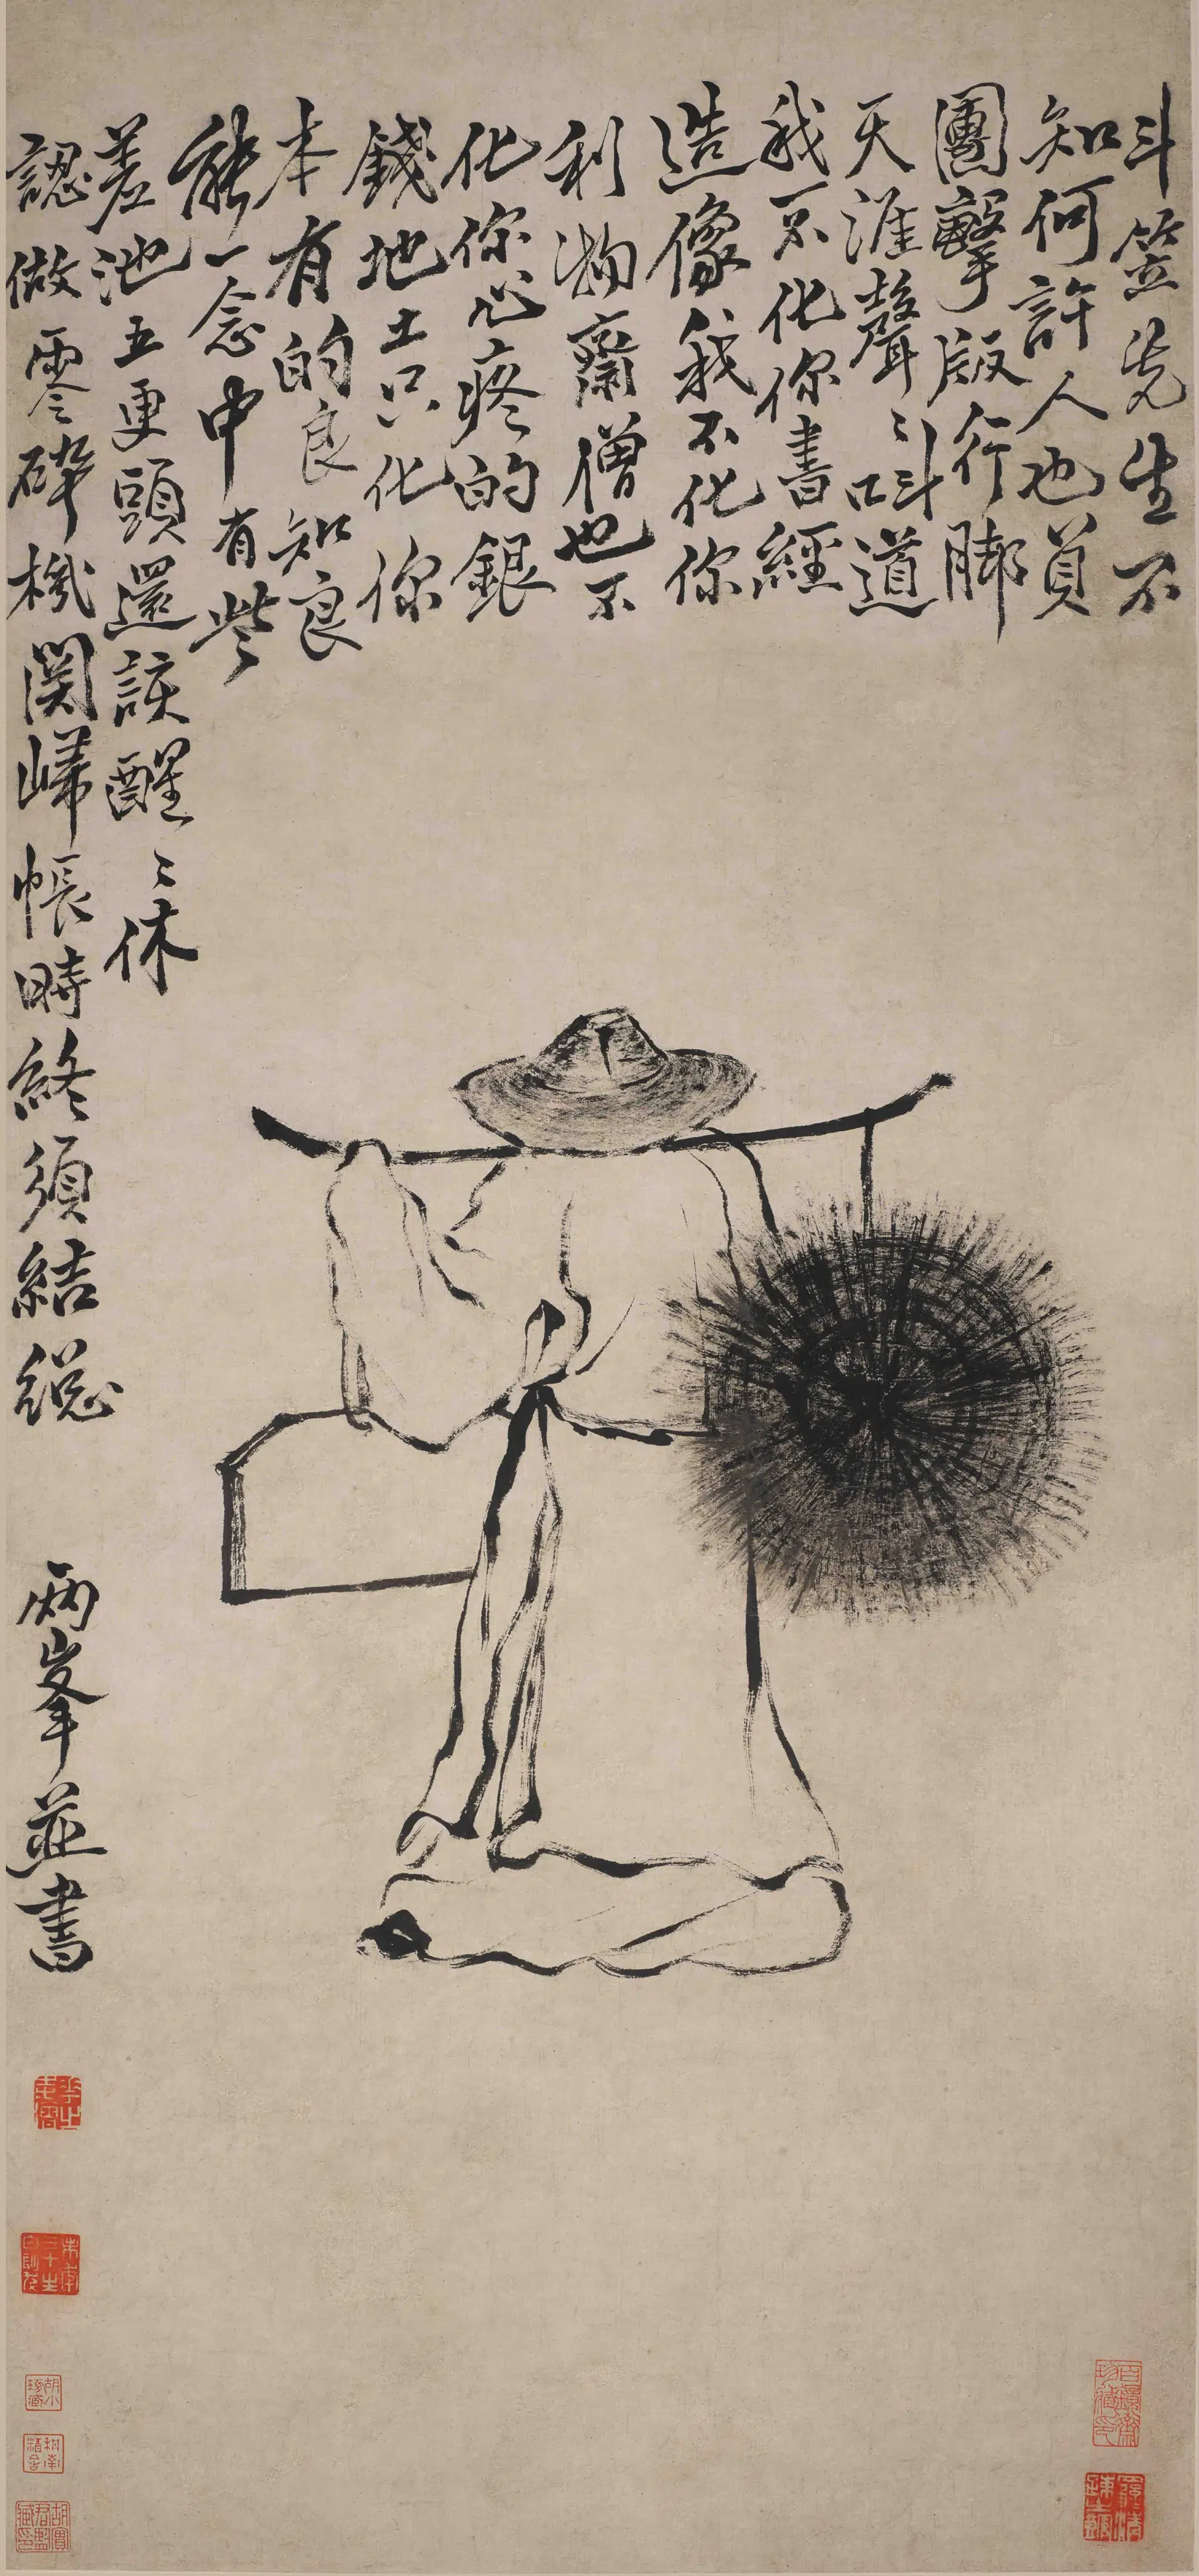 斗笠先生不
知何許人也負
團擊版行腳
天涯聲〻叫道
我不化你書經
造像我不化你
利物齋僧也不
化你心疼的銀
錢地土只化你
本有的良知良
能一念中有些
差池五更頭還該醒〻休
認做零碎機関歸帳時終須結總
兩峯並書